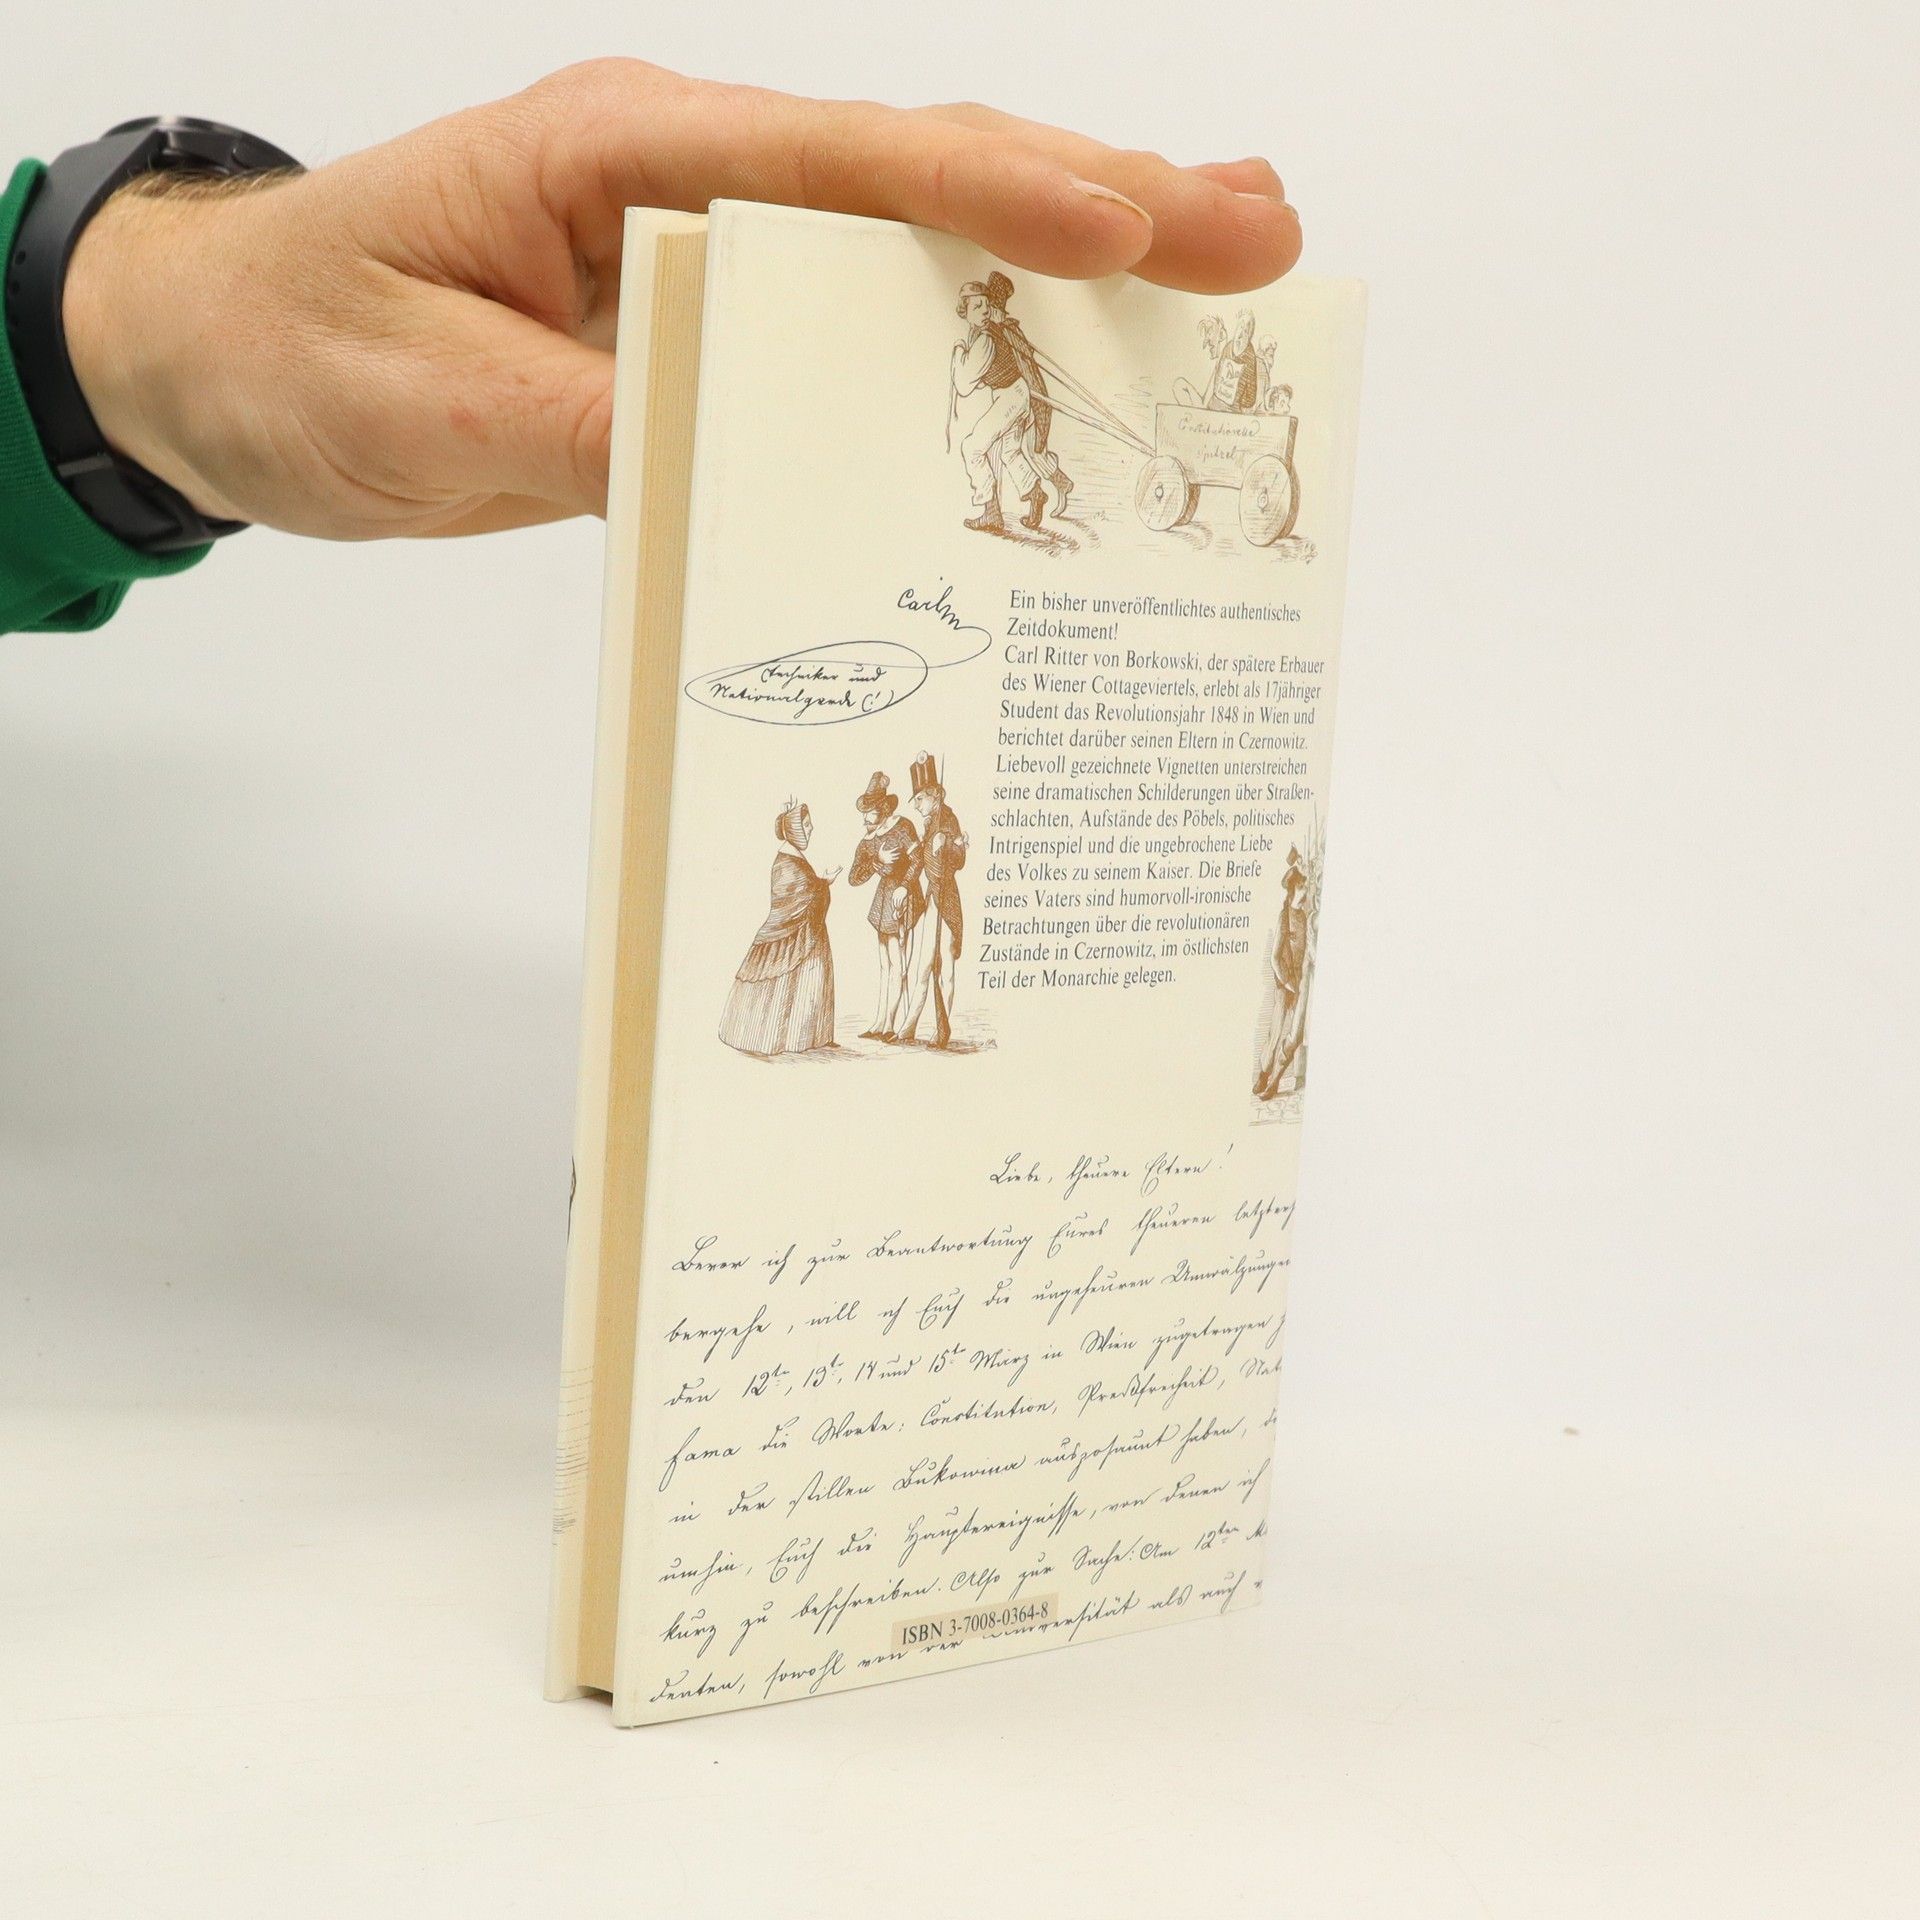 Constitutionelle
Spitzel
Carl m
Techniker und
Nationalgarde (!)
Ein bisher unveröffentlichtes authentisches
Zeitdokument!
Carl Ritter von Borkowski, der spätere Erbauer
des Wiener Cottageviertels, erlebt als 17jähriger
Student das Revolutionsjahr 1848 in Wien und
berichtet darüber seinen Eltern in Czernowitz.
Liebevoll gezeichnete Vignetten unterstreichen
seine dramatischen Schilderungen über Straßen-
schlachten, Aufstände des Pöbels, politisches
Intrigenspiel und die ungebrochene Liebe
des Volkes zu seinem Kaiser. Die Briefe
seines Vaters sind humorvoll-ironische
Betrachtungen über die revolutionären
Zustände in Czernowitz, im östlichsten
Teil der Monarchie gelegen.
Liebe, theuere Eltern!
Bevor ich zur Beantwortung Eures theueren
bergehe, will ich Euch die ungeheuren Umwälzungen
den 12te, 13te, 14 und 15te März in Wien zugetragen
Fama die Worte: Constitution, Preßfreiheit, Nat
in der stillen Bukowina ausposaunt haben,
umhin, Euch die Hauptereignisse, von denen ich
kurz zu beschreiben. Also zur Sache: Am 12ten
denten, sowohl von der Universität als auch
ISBN 3-7008-0364-8